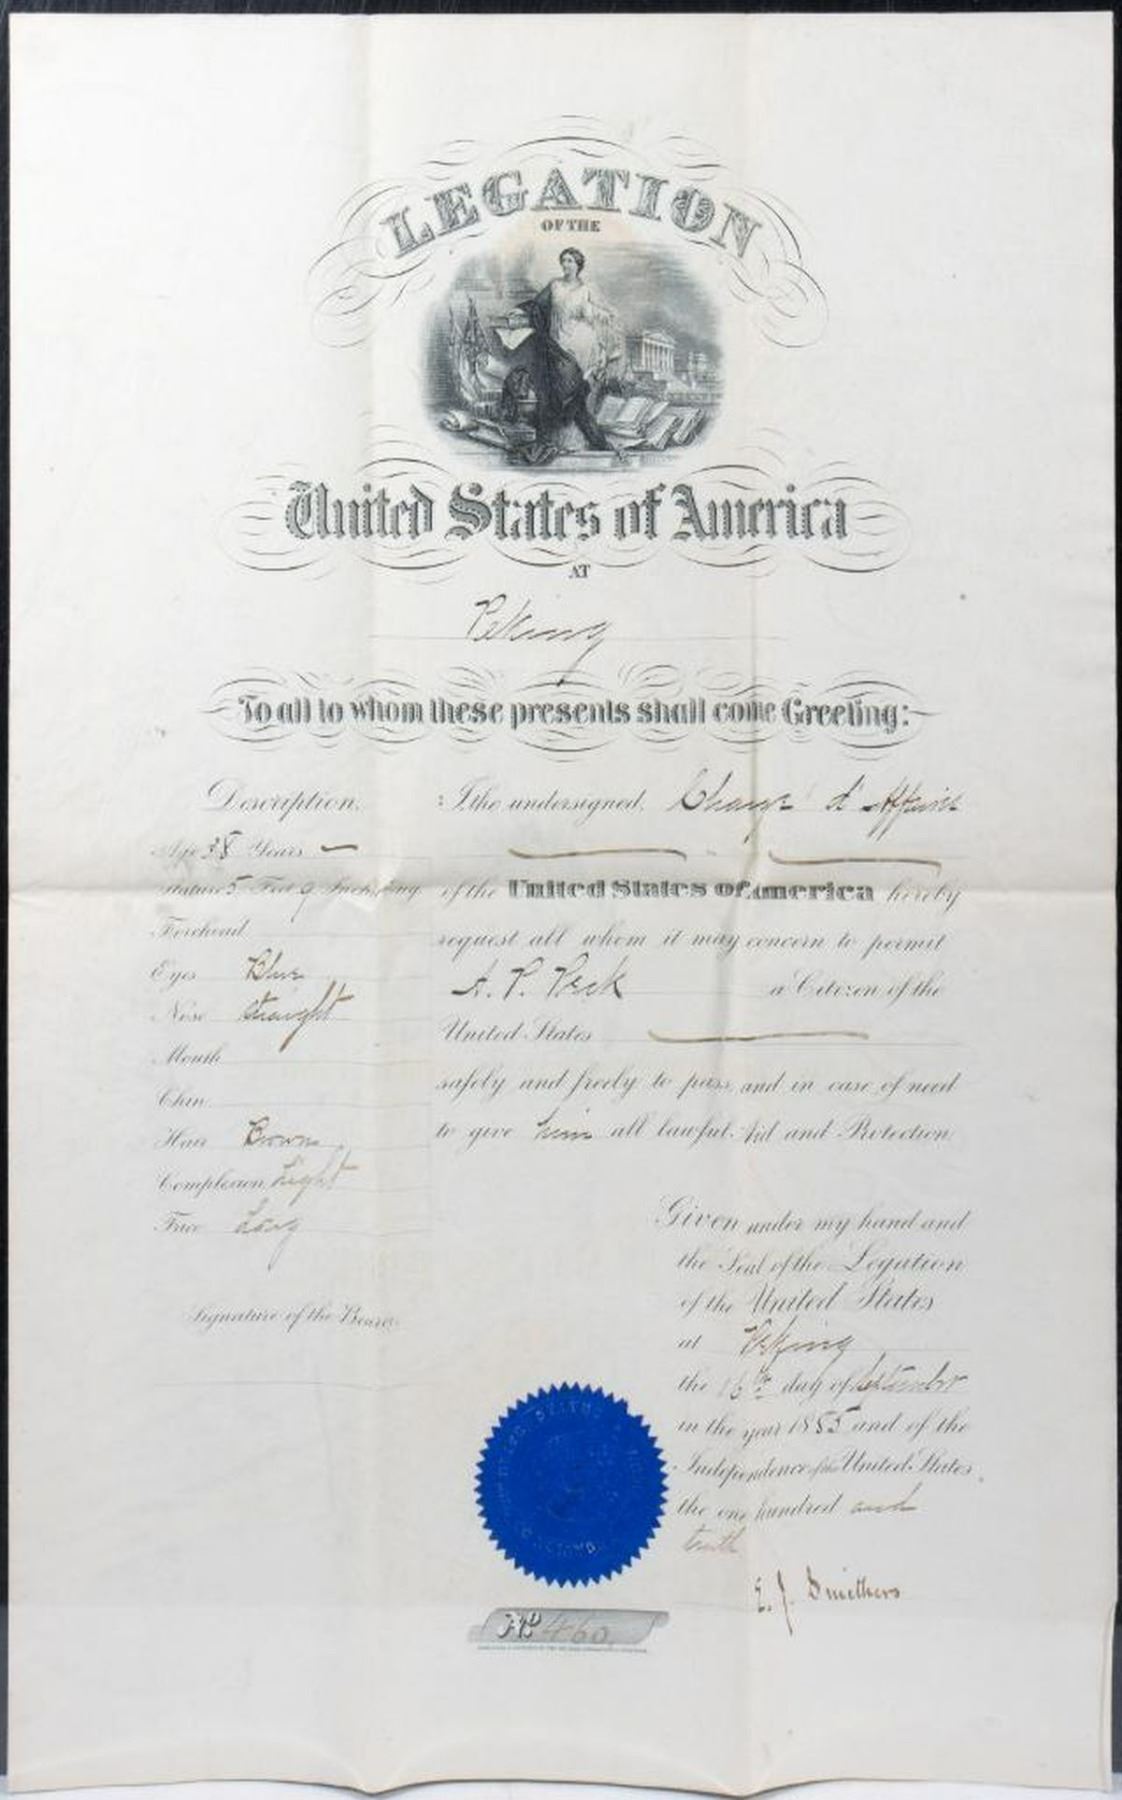 LEGATION
OF THE
United States of America
AT
Peking
To all to whom these presents shall come Greeting:
Description.
Age 38 Years
Stature 5 Feet 9 Inches Eng.
Forehead
Eyes Blue
Nose Straight
Mouth
Chin
Hair Brown
Complexion Light
Face Long
Signature of the Bearer
I the undersigned, Charge d' Affaires
of the United States of America hereby
request all whom it may concern to permit
A. P. Peck a Citizen of the
United States
safely and freely to pass, and in case of need
to give him all lawful Aid and Protection
Given under my hand and
the Seal of the Legation
of the United States
at Peking
the 16th day of September
in the year 1885 and of the
Independence of the United States
the one hundred and
tenth
E. J. Smithers
No 460.